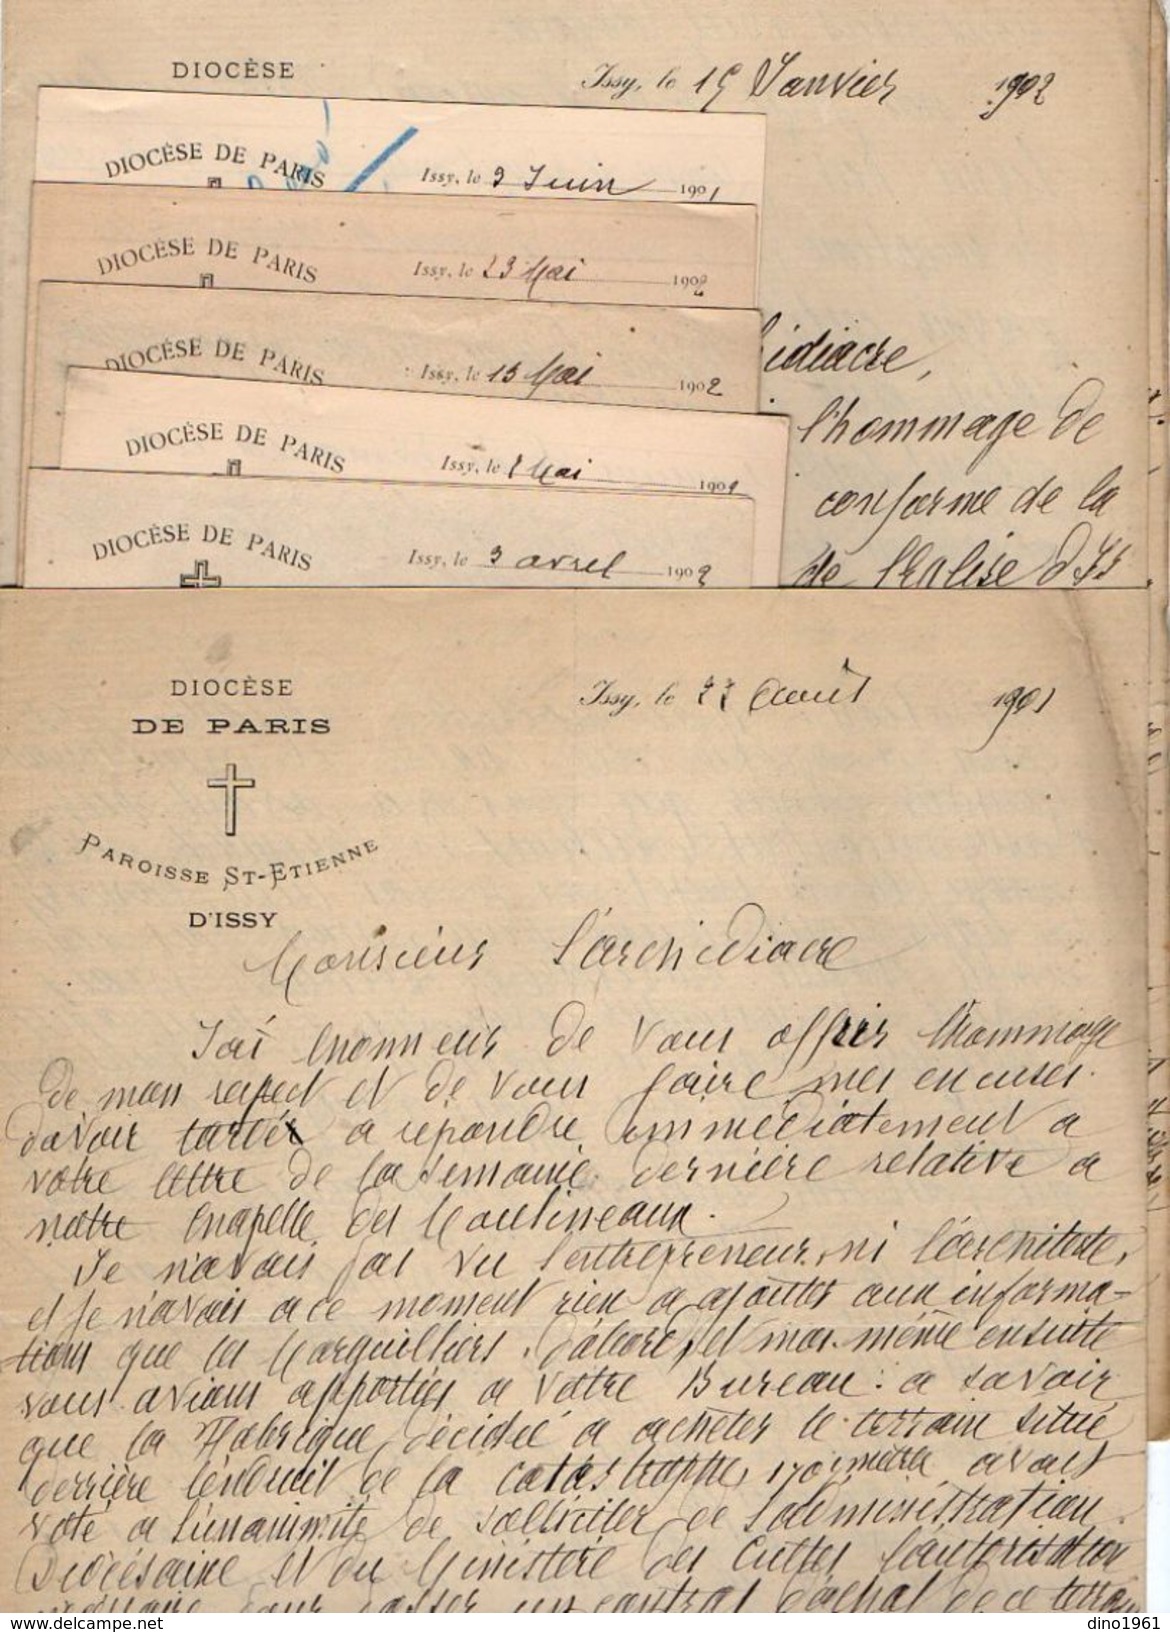 DIOCÈSE
Issy, le 15 Janvier 1902
DIOCÈSE DE PARIS
Issy, le 9 Juin 1901
DIOCÈSE DE PARIS
Issy, le 23 Mai 1902
DIOCÈSE DE PARIS
Issy, le 15 Mai 1902
idiacre,
l'hommage de
DIOCÈSE DE PARIS
Issy, le Mai 190
conforme de la
DIOCÈSE DE PARIS
Issy, le 3 avril 1902
de l'Eglise d'Is
DIOCÈSE
DE PARIS
Issy, le 27 Aout 1901
PAROISSE ST-ETIENNE
D'ISSY
Monsieur l'archidiacre
J'ai l'honneur de vous offrir l'hommage
de mon respect et de vous faire mes excuses
d'avoir tardé a répondre immédiatement a
votre lettre de la semaine dernière relative a
notre chapelle des Moulineaux.
Je n'avais pas vu l'entrepreneur, ni l'architecte,
et je n'avais a ce moment rien a ajouter aux informa-
tions que les Marguilliers d'abord, et moi-même ensuite
vous avions apportées a votre Bureau : a savoir
que la Fabrique décidée a acheter le terrain situé
derrière l'endroit de la catastrophe, 170 mètres avait
voté a l'unanimité de solliciter de l'administration
Diocésaine et du Ministère des Cultes l'autorisation
pour passer un contrat d'achat de ce terrain
dino1961